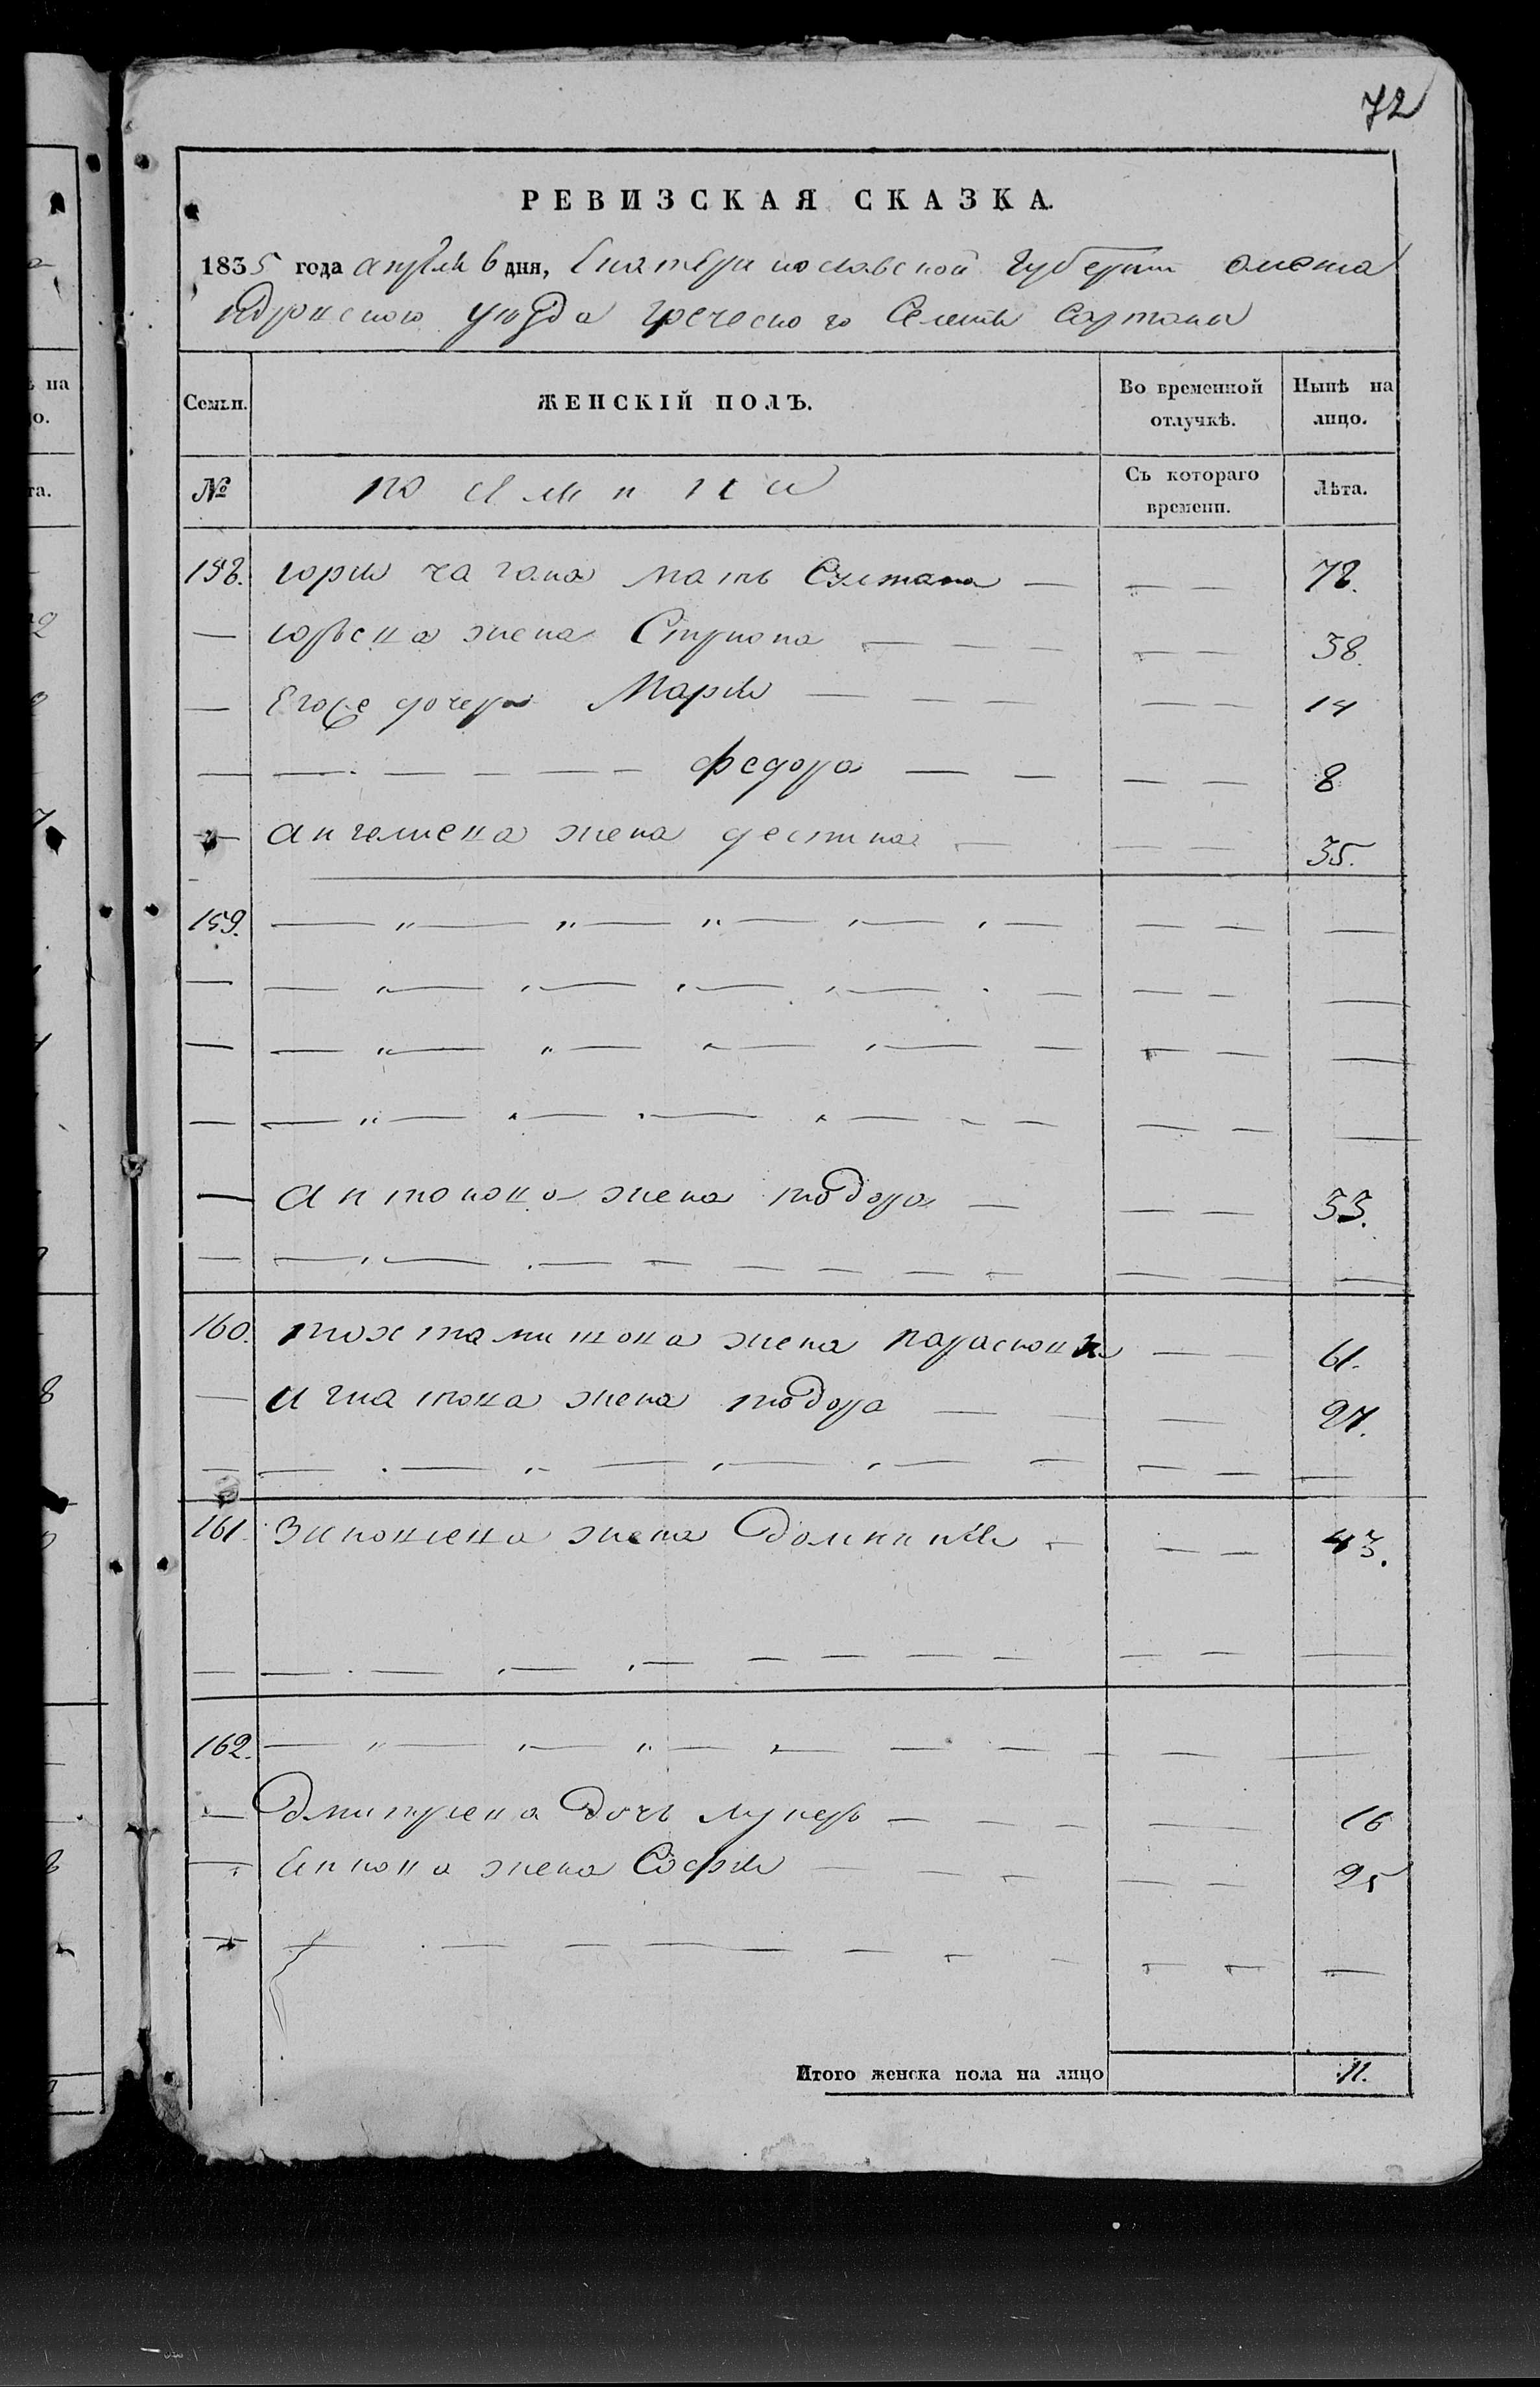 72
РЕВИЗСКАЯ СКАЗКА.
1835 года апреля 6 дня, Екатеринославской губернии алекса
ндриского уезда греческого Селения Сартаны
Семьи. ЖЕНСКІЙ ПОЛЪ. Во временной отлучкѣ. Нынѣ на лицо.
№ поселяни Съ котораго времени. Лѣта.
158. юрия чагана мать Султана — — — 78.
— юрьева жена Стириона — — — — — 38.
— Егоже дочери Мария — — — — — 14
— — — — — — федора — — — — 8
— ангелиева жена деспина — — — 35.
159. — „ — „ — „ — „ — „ — — — —
— — „ — „ — „ — „ — — — — —
— — „ — „ — „ — „ — — — — —
— — „ — „ — „ — „ — — — — — —
— антонова жена тодора — — — 33.
— — „ — — — — — — — — — —
160. тохтамишова жена параскова — — 61.
— игнатова жена тодора — — — 27.
— — — „ — „ — „ — — — — —
161. Зиновиева жена Домникия — — — 43.
— — — — — — — — — — — —
162. — „ — „ — „ — „ — — — — —
— Дмитриева Дочь лукерь — — — — 16
— Яннова жена София — — — — — 25
— — — — — — — — — — —
Итого женска пола на лицо 11.
на
о.
та.